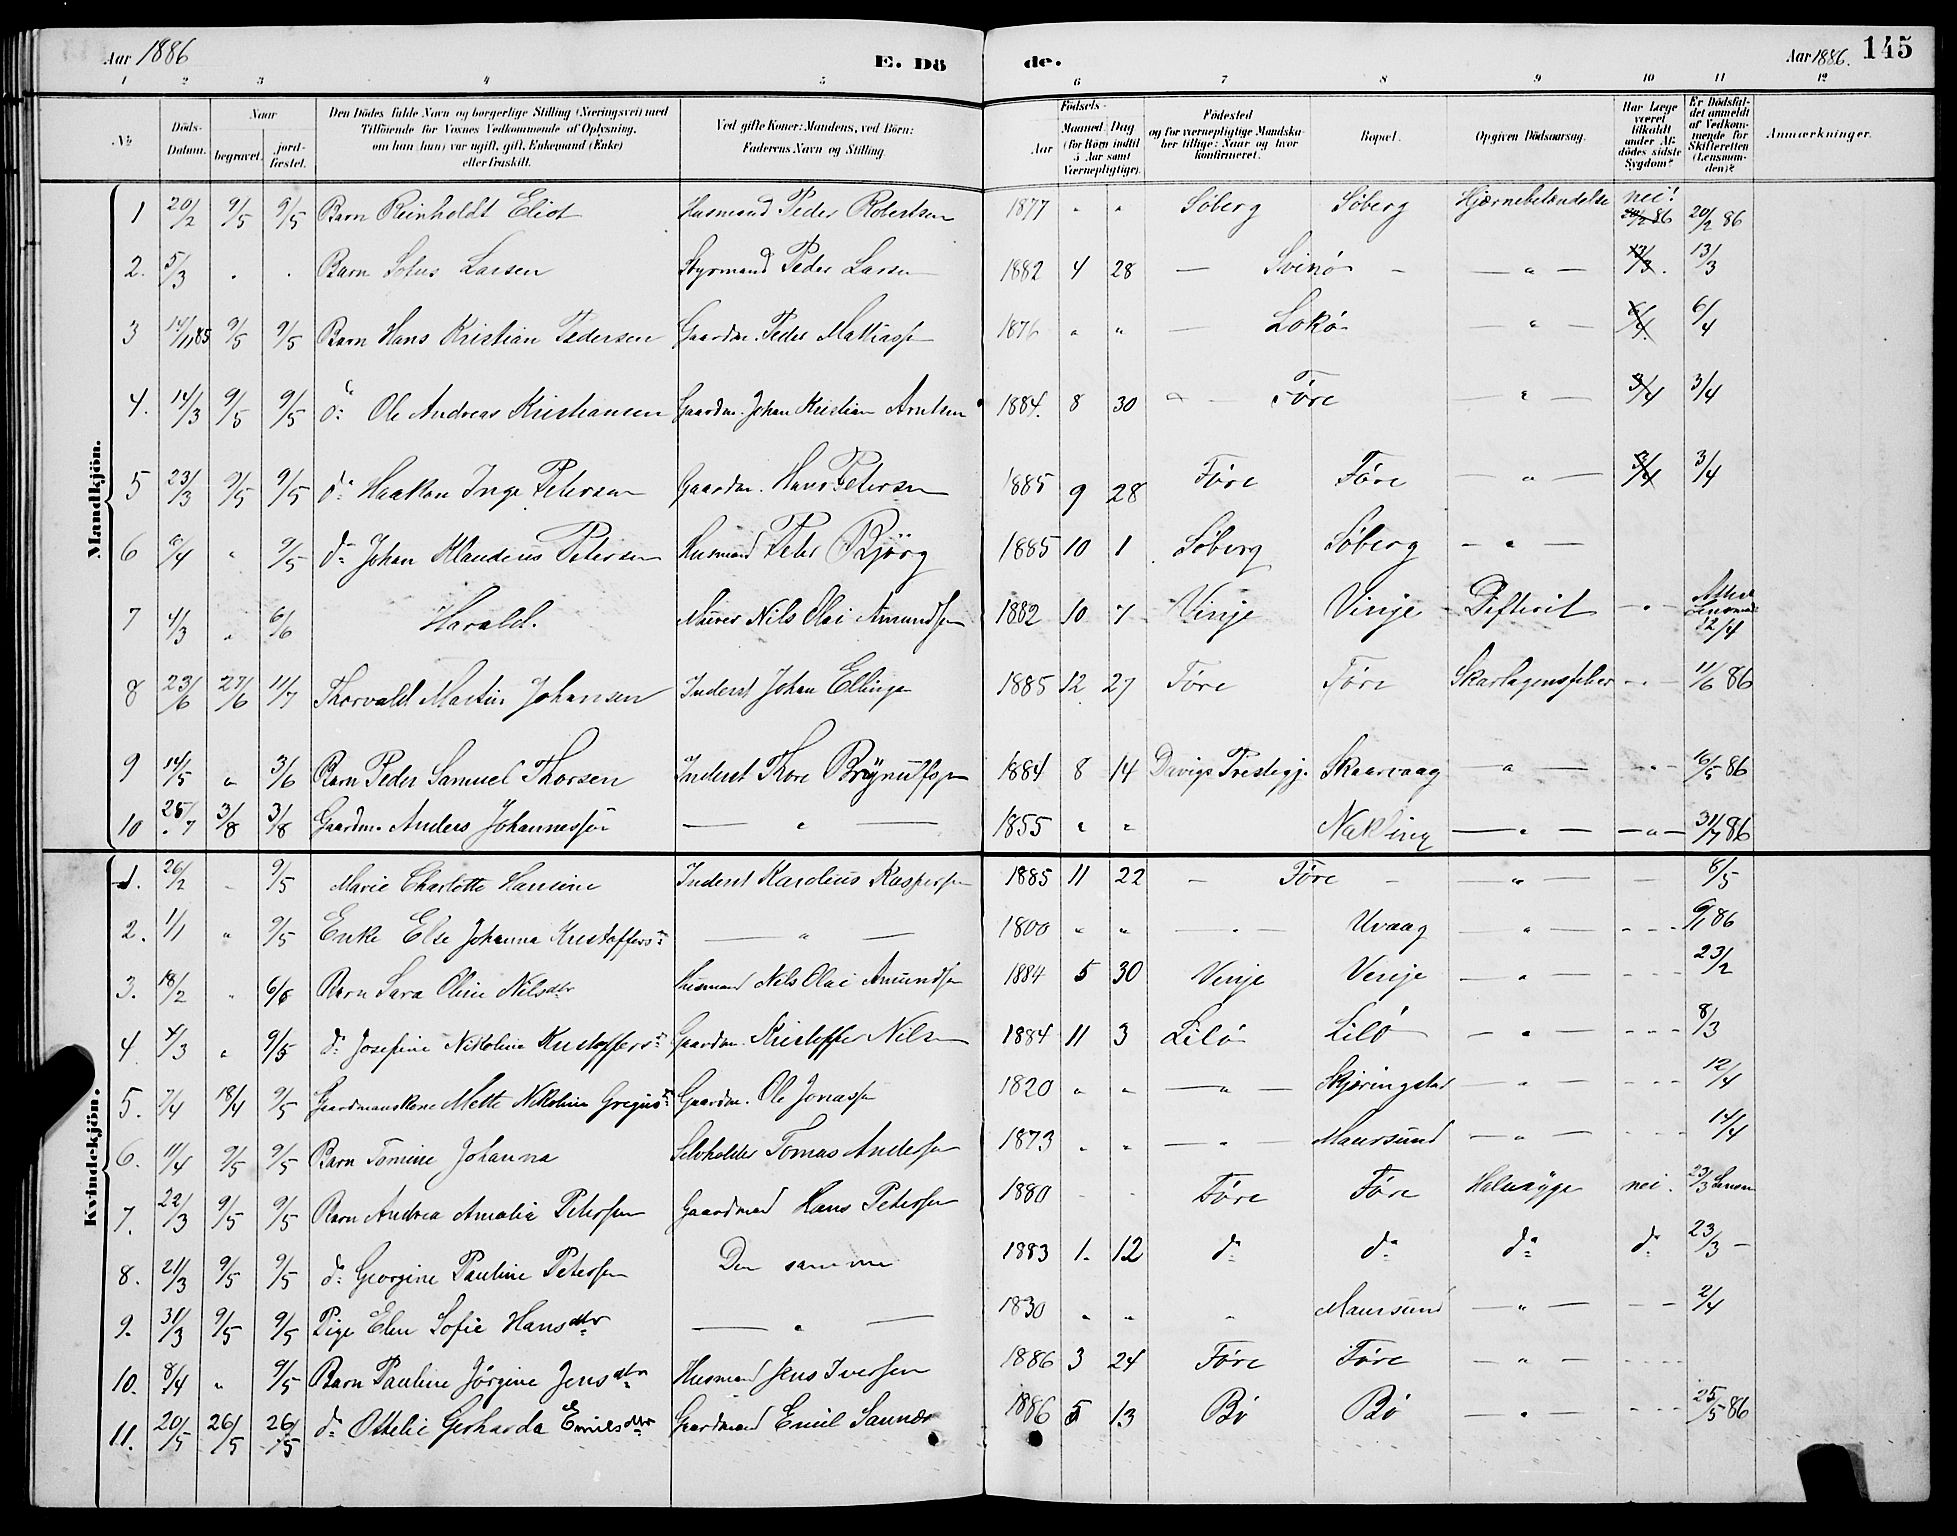 Aar 1886 E. Dö de. Aar 1886. 145
1 2 3 4 5 6 7 8 9 10 11 12
No. Döds-Datum. Naar begravet. jord-fæstet. Den Dödes fulde Navn og borgerlige Stilling (Næringsvei) med Tilföiende for Voxnes Vedkommende af Oplysning, om han (hun) var ugift, gift, Enkemand (Enke) eller fraskilt. Ved gifte Koner: Mandens, ved Börn: Faderens Navn og Stilling. Födsels- Aar Maaned Dag (for Börn indtil 5 Aar samt Værnepligtige). Födested og for værnepligtige Mandskaber tillige: Naar og hvor konfirmeret. Bopæl. Opgiven Dödsaarsag. Har Læge været tilkaldt under Afdödes sidste Sygdom? Er Dödsfaldet anmeldt af Vedkommende for Skifteretten (Lensmanden)? Anmærkninger.
Mandkjön.
1 20/2 9/5 9/5 Barn Reinholdt Eliot Husmand Peder Robertsen 1877 " " Söberg Söberg Hjærnebetændelse nei! 20/2 86 20/2 86
2. 5/3 . . Barn Sofus Larsen Styrmand Peder Larsen 1882 4 28 — Svinö — — " — 13/3. 13/3
3 14/11 85 9/5 9/5 Barn Hans Kristian Pedersen Gaardm. Peder Mathiass 1876 " " — Lokö — " — 6/4. 6/4
4. 14/3 9/5 9/5 do Ole Andreas Kristiansen Gaardm. Johan Kristian Arntsen 1884. 8 30 — Före — " — 3/4 3/4
5 23/3 9/5 9/5 do Haakon Inge Petersen Gaardm. Hans Petersen 1885 9 28 Före Före — " — 3/4 3/4
6 6/4 " 9/5 do Johan Klaudius Petersen Husmand Peter Björg 1885 10 1 Söberg Söberg — " —
7 4/3 " 6/6 Harald. Murer Nils Olai Amundsen 1882 10 7 Vinje Vinje Difterit — " — 12/4
8 23/6 27/6 11/7 Thorvald Martin Johansen Inderst Johan Ellings 1885 12 27 Före Före Skarlagensfeber — " — 11/6 86
9 14/5 " 3/6 Barn Peder Samuel Thorsen Inderst Thore Brynulfsen 1884 8 14 Davigs Prestegj. Skaarvaag — " — — " — 16/5 86
10 25/7 3/8 3/8 Gaardm. Anders Johannessön — " — 1855 " " Nakling — " — — " — 31/7 86
Kvindekjön.
1. 26/2 " 9/5 Marie Charlotte Hansine Inderst Karolius Kaspersen 1885 11 22 — Före — — " — — 8/5
2. 1/1 " 9/5 Enke Else Johanna Kristoffers — " — 1800 " " — " — Uvaag — " — — — — 6/1 86
3. 18/2 " 6/6 Barn Sara Oline Nilsdtr Husmand Nils Olai Amundsen 1884 5 30 Vinje Vinje — " — — — — 23/2
4. 4/3 " 9/5 do Josefine Nikoline Kristoffers Gaardm. Kristoffer Nilsen 1884 11 3 Lilö Lilö — " — — — — 8/3
5. 7/4 18/4 9/5 Gaardmandskone Mette Nikoline Gregus Gaardm. Ole Jonassen 1820 " " — " — Skjöringstad — " — — — — 12/4
6. 11/4 9/5 9/5 Barn Tomine Johanna Selvholder Tomas Andersen 1873 " " — " — Maursund — " — — — — 14/4
7. 22/3 9/5 9/5 Barn Andrea Amalia Petersen Gaardmand Hans Petersen 1880 - - Före Före Halssyge nei. 23/3 Lensm
8. 21/3 9/5 9/5 do Georgine Pauline Petersen Den samme 1883 1. 12 do do do do 23/3 —
9. 31/3 9/5 9/5 Pige Elen Sofie Hansdtr — " — 1830 " " " Maursund — " — — — 2/4
10. 8/4 " 9/5 Barn Pauline Jörgine Jensdtr Husmand Jens Iversen 1886 3 24 Före Före — " — — — —
11. 20/5 26/5 26/5 do Ottelie Gerharda Emilsdtr Gaardmand Emil Sannes 1886 5 13 Bö Bö — " — — — — 25/5 86